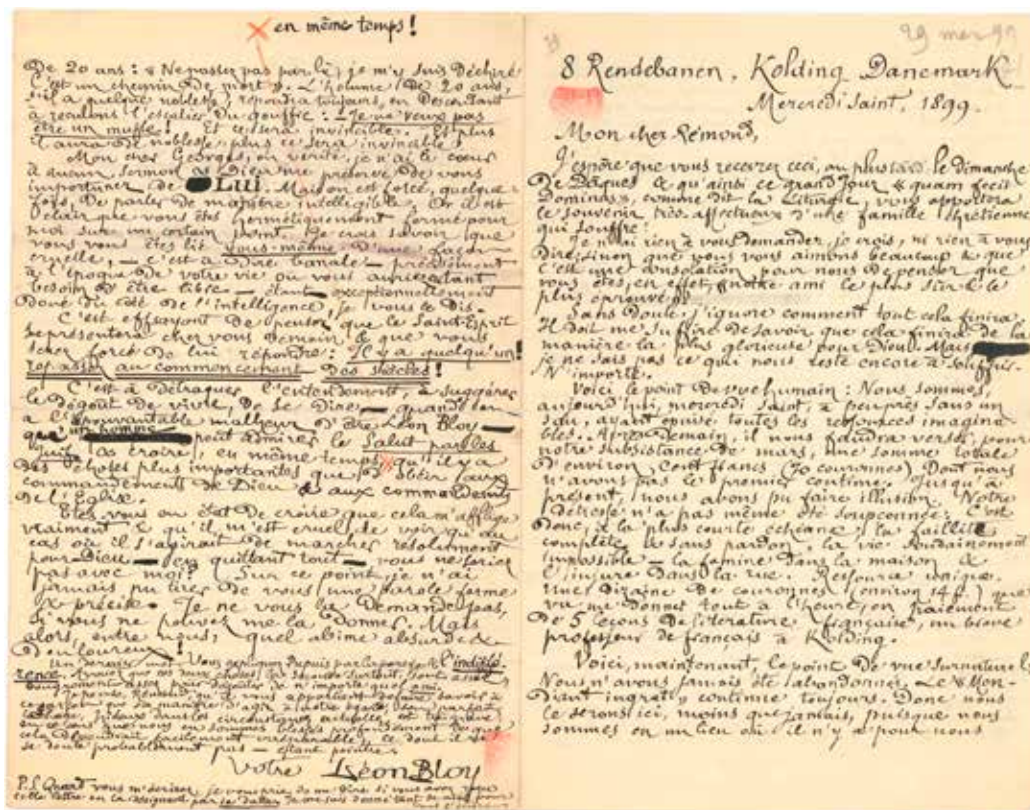 en même temps !
De 20 ans : « Ne passez pas par là, je m'y suis Déchiré
C'est un chemin de mort ». L'homme De 20 ans,
s'il a quelque noblesse, répondra toujours, en Descendant
à reculons l'escalier Du gouffre : « Je ne veux pas
être un mufle ! Et ce sera invincible. Et plus
il aura De noblesse, plus ce sera invincible !
Mon cher Georges, en vérité, je n'ai le cœur
à aucun sermon & Dieu me préserve De vous
importuner de Lui. Mais on est forcé, quelque-
fois, De parler De manière intelligible. Or il est
clair que vous êtes hermétiquement fermé pour
moi sur un certain point. Je crois savoir que
vous vous êtes lié vous-même D'une façon
cruelle, — c'est à Dire banale — précisément
à l'époque De votre vie où vous auriez tant
besoin D'être libre — étant exceptionnellement
Doué du côté De l'intelligence, je vous le Dis.
C'est effrayant De penser que le Saint-Esprit
se présentera chez vous Demain & que vous
serez forcé De lui répondre : Il y a quelqu'un !
repassez au commencement Des siècles !
C'est à Détraquer l'entendement, à suggérer
le Dégoût De vivre, De se Dire — quand on
a l'épouvantable malheur D'être Léon Bloy —
qu'un homme peut admirer le Salut par les
Juifs & croire, en même temps qu'il y a
Des choses plus importantes que D'obéir aux
commandements De Dieu & aux commandements
De l'Eglise.
Etes-vous en état De croire que cela m'afflige
vraiment & qu'il m'est cruel De voir qu'au
cas où il s'agirait De marcher résolument
pour Dieu — en quittant tout — vous ne seriez
pas avec moi ? Sur ce point, je n'ai
jamais pu tirer De vous une parole ferme
& précise. Je ne vous la Demande pas,
si vous ne pouvez me la Donner. Mais
alors, entre nous, quel abîme absurde &
Douloureux !
Un Dernier mot. Vous expliquez par la paresse & l'indiffé-
rence.
Votre Léon Bloy
P.S. Quand vous m'écrirez, je vous prie De me Dire si vous avez reçu
29 mars 99
8 Rendebanen, Kolding Danemark
Mercredi Saint, 1899.
Mon cher Rémond,
J'espère que vous recevrez ceci, au plus tard le dimanche
De Pâques & qu'ainsi ce grand Jour « quam fecit
Dominus », comme dit la Liturgie, vous apportera
le souvenir très affectueux D'une famille chrétienne
qui souffre.
Je n'ai rien à vous Demander, je crois, ni rien à vous
Dire, sinon que vous vous aimons beaucoup & que
C'est une consolation pour nous De penser que
vous êtes, en effet, notre ami le plus sûr & le
plus éprouvé.
Sans Doute j'ignore comment tout cela finira.
Il Doit me suffire De savoir que cela finira De la
manière la plus glorieuse pour Dieu. Mais
je ne sais pas ce qui nous reste encore à souffrir.
N'importe.
Voici le point De vue humain : Nous sommes,
aujourd'hui, mercredi saint, à peu près sans un
sou, ayant épuisé toutes les ressources imagina-
bles. Après-Demain, il nous faudra verser, pour
notre subsistance de mars, une somme totale
D'environ cent francs (70 couronnes) Dont nous
n'avons pas le premier centime. Jusqu'à
présent, nous avons pu faire illusion. Notre
Détresse n'a pas même été soupçonnée. C'est
Donc, à la plus courte échéance, la faillite
complète & sans pardon, la vie soudainement
impossible — la famine Dans la maison &
l'injure Dans la rue. Ressource unique.
Une Dizaine De couronnes (environ 14 f.) que
va me Donner tout à l'heure, en paiement
De 5 leçons De littérature française, un brave
professeur de français à Kolding.
Voici, maintenant, le point De vue surnaturel.
Nous n'avons jamais été abandonnés. Le « Men-
Diant ingrat » continue toujours. Donc nous
le serons ici, moins que jamais, puisque nous
sommes en un lieu où il n'y a pour nous